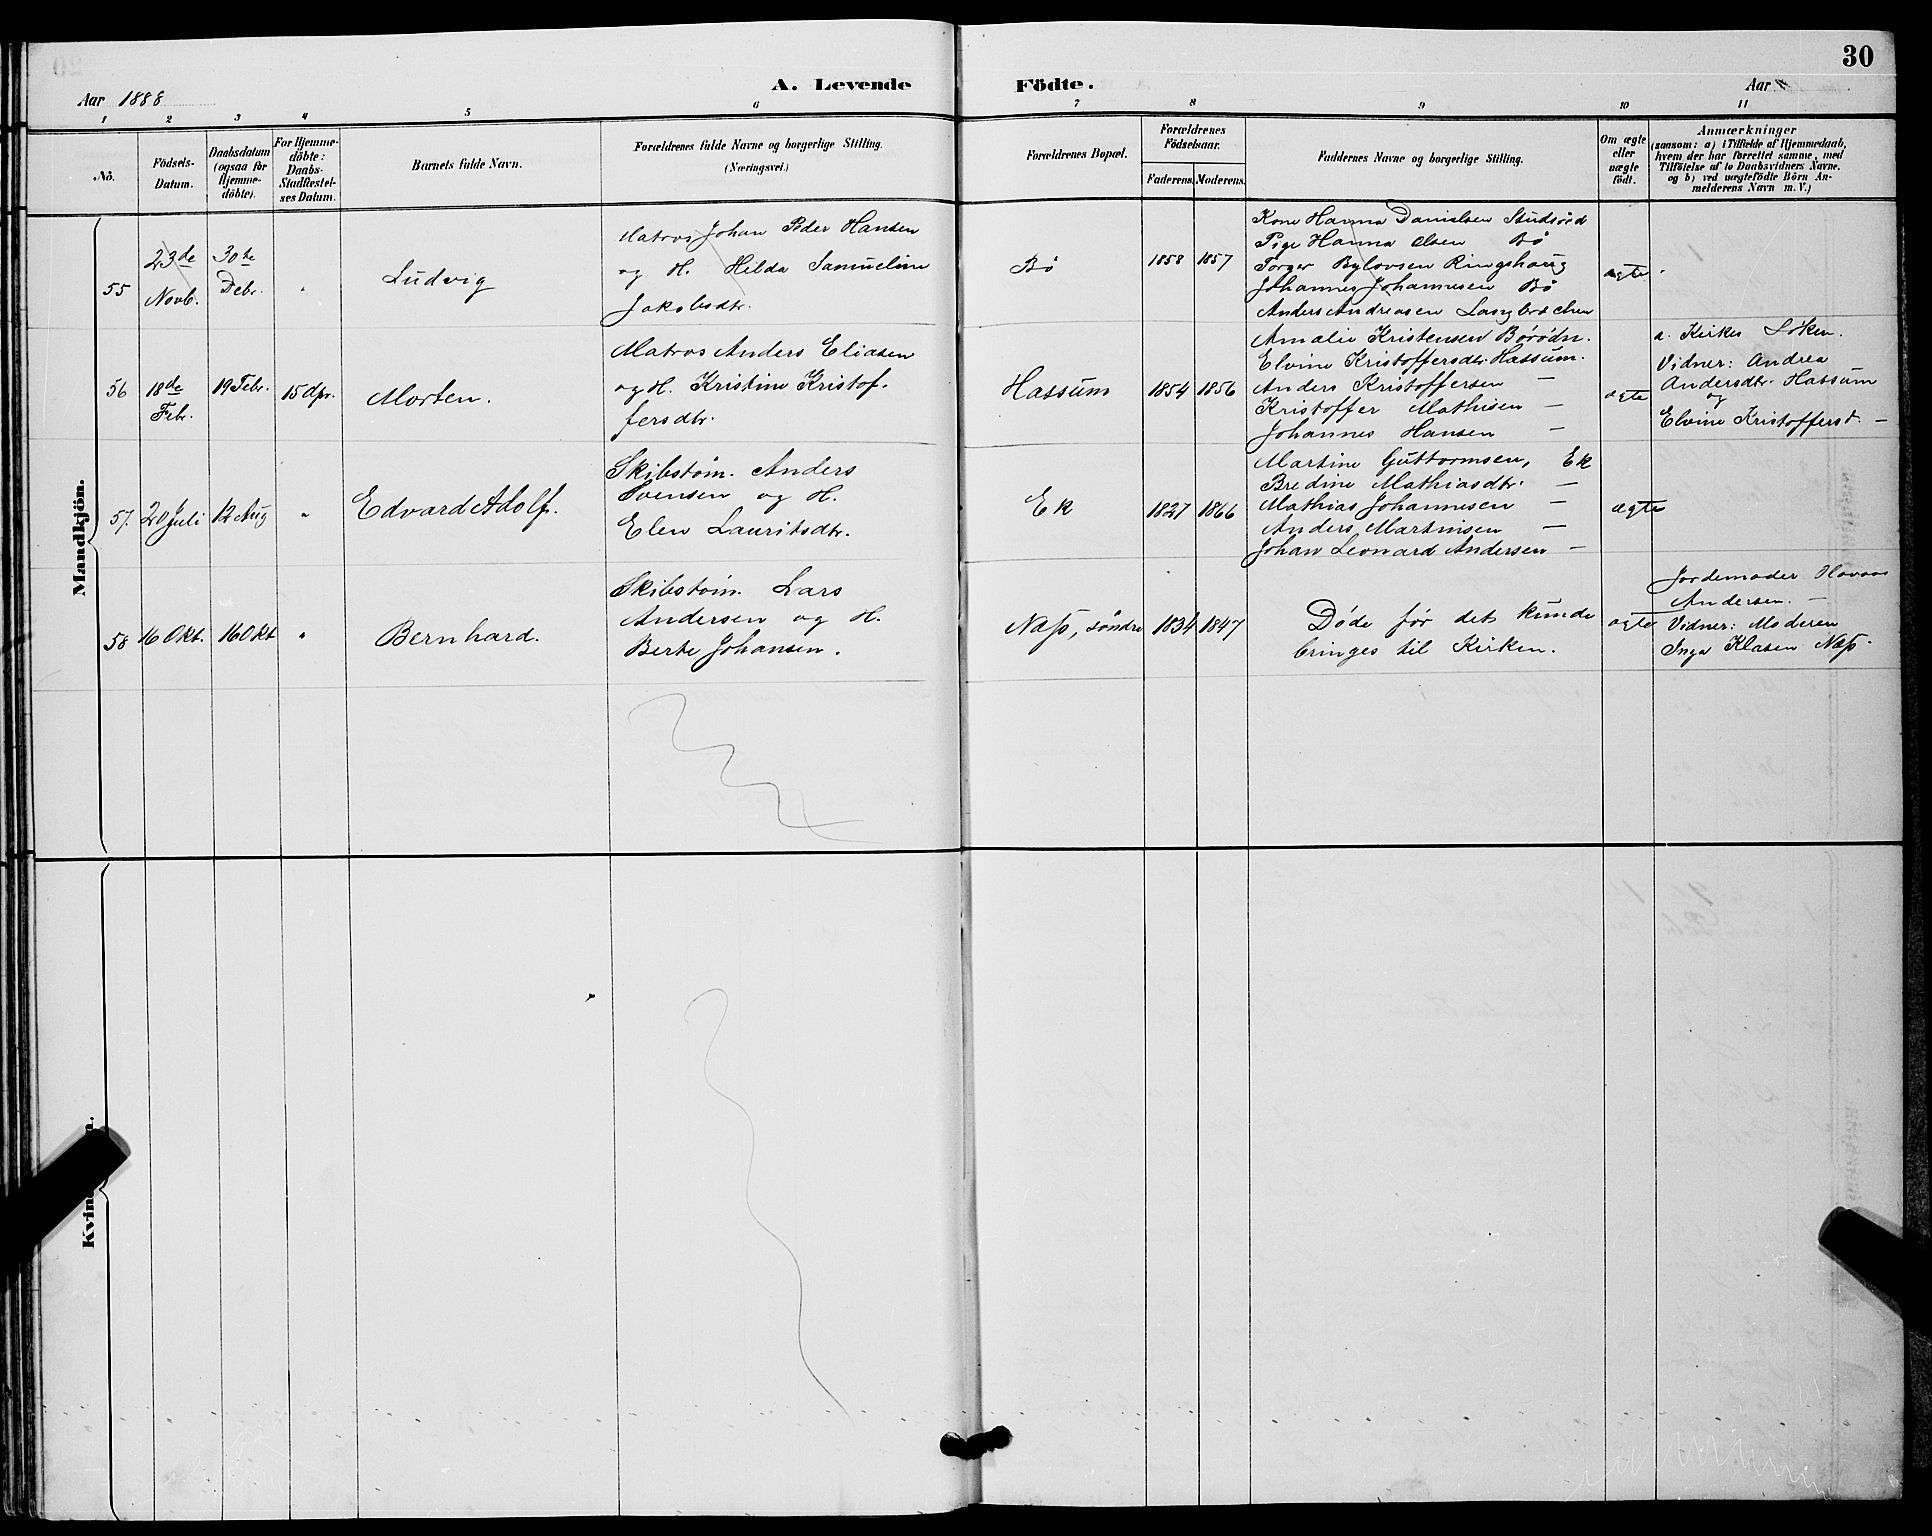 30
A. Levende Födte.
Aar 1888
Aar
1 2 3 4 5 6 7 8 9 10 11
No.
Födsels-Datum.
Daabsdatum (ogsaa for Hjemmedöbte).
For Hjemmedöbte: Daabs-Stadfæstelses Datum.
Barnets fulde Navn.
Forældrenes fulde Navne og borgerlige Stilling. (Næringsvei.)
Forældrenes Bopæl.
Forældrenes Födselsaar.
Faderens. Moderens.
Faddernes Navne og borgerlige Stilling.
Om ægte eller uægte födt.
Anmærkninger
(saasom: a) i Tilfælde af Hjemmedaab, hvem der har forrettet samme, med Tilföielse af to Daabsvidners Navne, og b) ved uægtefödte Börn Anmelderens Navn m. V.)
Mandkjön.
55
23de Novb.
30te Debr.
"
Ludvig
Matros Johan Peder Hansen
og H. Hilda Samueline
Jakobsdtr.
Bö
1858 1857
Kone Hanna Danielsen Studsröd
Pige Hanna Olsen Bö
Torger Bylovsen Ringshaug
Johannes Johannesen Bö
Anders Andreasen
ægte
56
18de Febr.
19 Febr.
15 Apr.
Morten.
Matros Anders Eliasen
og H. Kristine Kristof-
fersdtr.
Hassum
1854 1856
Amalie Kristensen
Elvine Kristoffersdtr Hassum.
Anders Kristoffersen —
Kristoffer Mathisen —
Johannes Hansen —
ægte
a. Kirkes. Löken.
Vidner: Andrea
Andersdtr. Hassum
og
Elvine Kristoffersd. —
57.
20 Juli
12 Aug
"
Edvard Adolf.
Skibstöm. Anders
Svensen og H.
Elen Lauritsdtr.
Ek
1827 1866
Martine Guttormsen, Ek
Bredine Mathiasdtr. —
Mathias Johannesen —
Anders Martinsen —
Johan Leonard Andersen —
ægte
58
16 Okt.
16 Okt
"
Bernhard.
Skibstöm. Lars
Andersen og H.
Berte Johansen.
Næss, söndre
1834 1847
Döde för det kunde
bringes til Kirken.
ægte
Jordemoder
Andersen. —
Vidner: Moderen
Inga Klasen Næss.